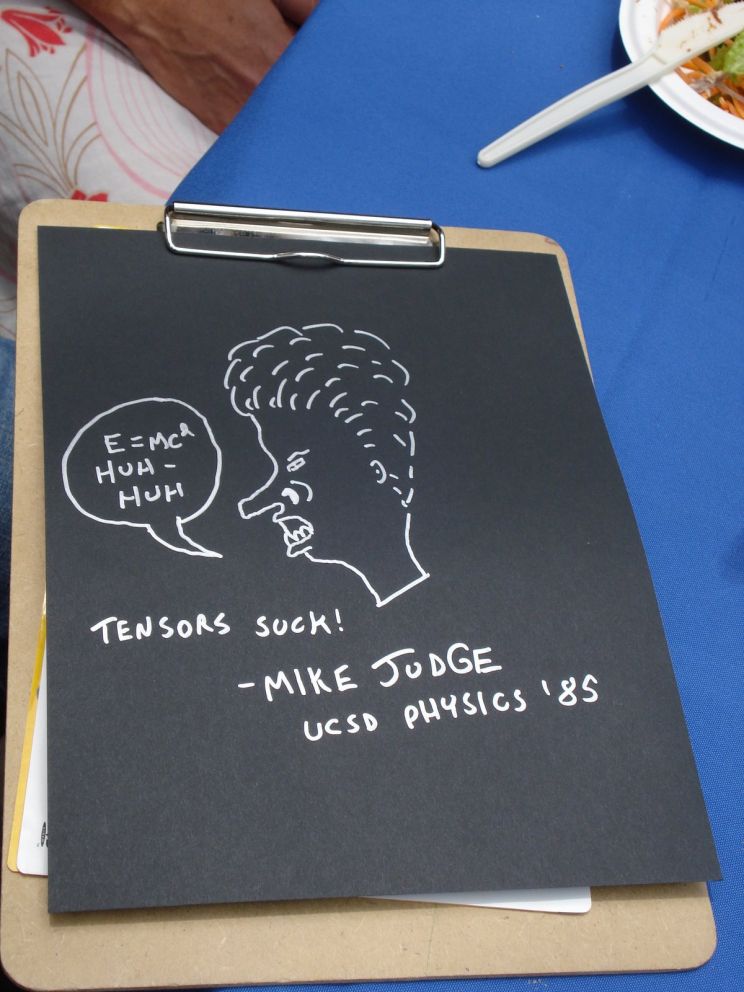 E=MC²
HUH-
HUH
TENSORS SUCK!
-MIKE JUDGE
UCSD PHYSICS '85